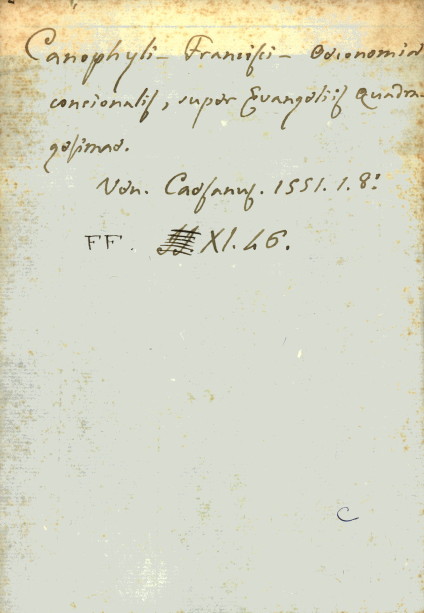 Canophyli - Francisci - Oeconomia
concionalis, super Evangeliis Quadra-
gesimae.
Ven. Caesanus. 1551. 1. 8:
FF. XI. 46.
C